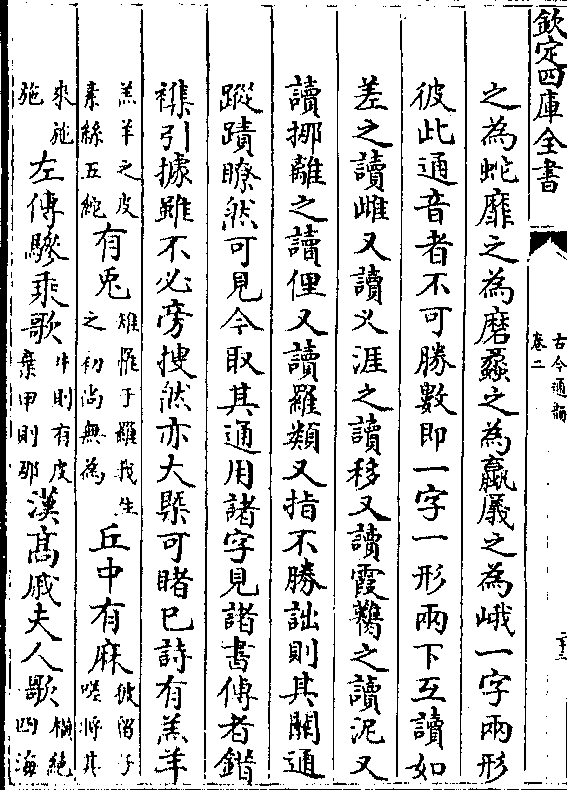 欽定四庫全書
古今通韻
卷二
二十三
之為蛇靡之為磨蠡之為蠃㕒之為峨一字兩形
彼此通音者不可勝數即一字一形兩下互讀如
差之讀雌又讀叉涯之讀移又讀霞臡之讀泥又
讀挪離之讀俚又讀羅類又指不勝詘則其關通
蹤蹟瞭然可見今取其通用諸字見諸書傳者鍇
襍引據雖不必旁搜然亦大槩可睹已詩有羔羊
羔羊之皮素絲五紽有兎雉罹于羅我生之初尚無為丘中有麻彼留子嗟將其
來施施左傳驂乗歌牛則有皮棄甲則那漢髙戚夫人歌橫絶四海